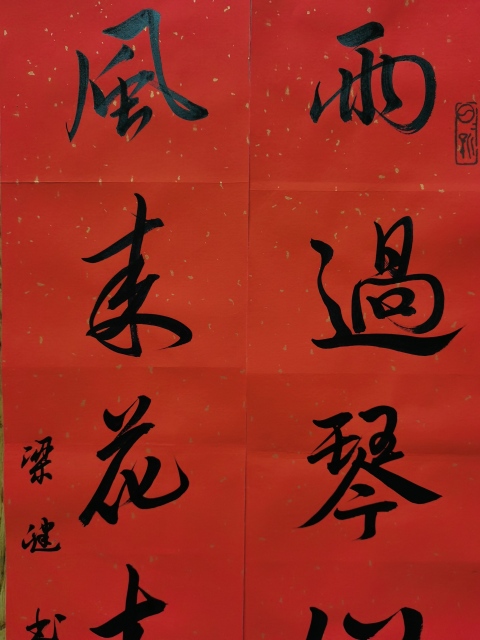 雨過琴
風來花
梁健书